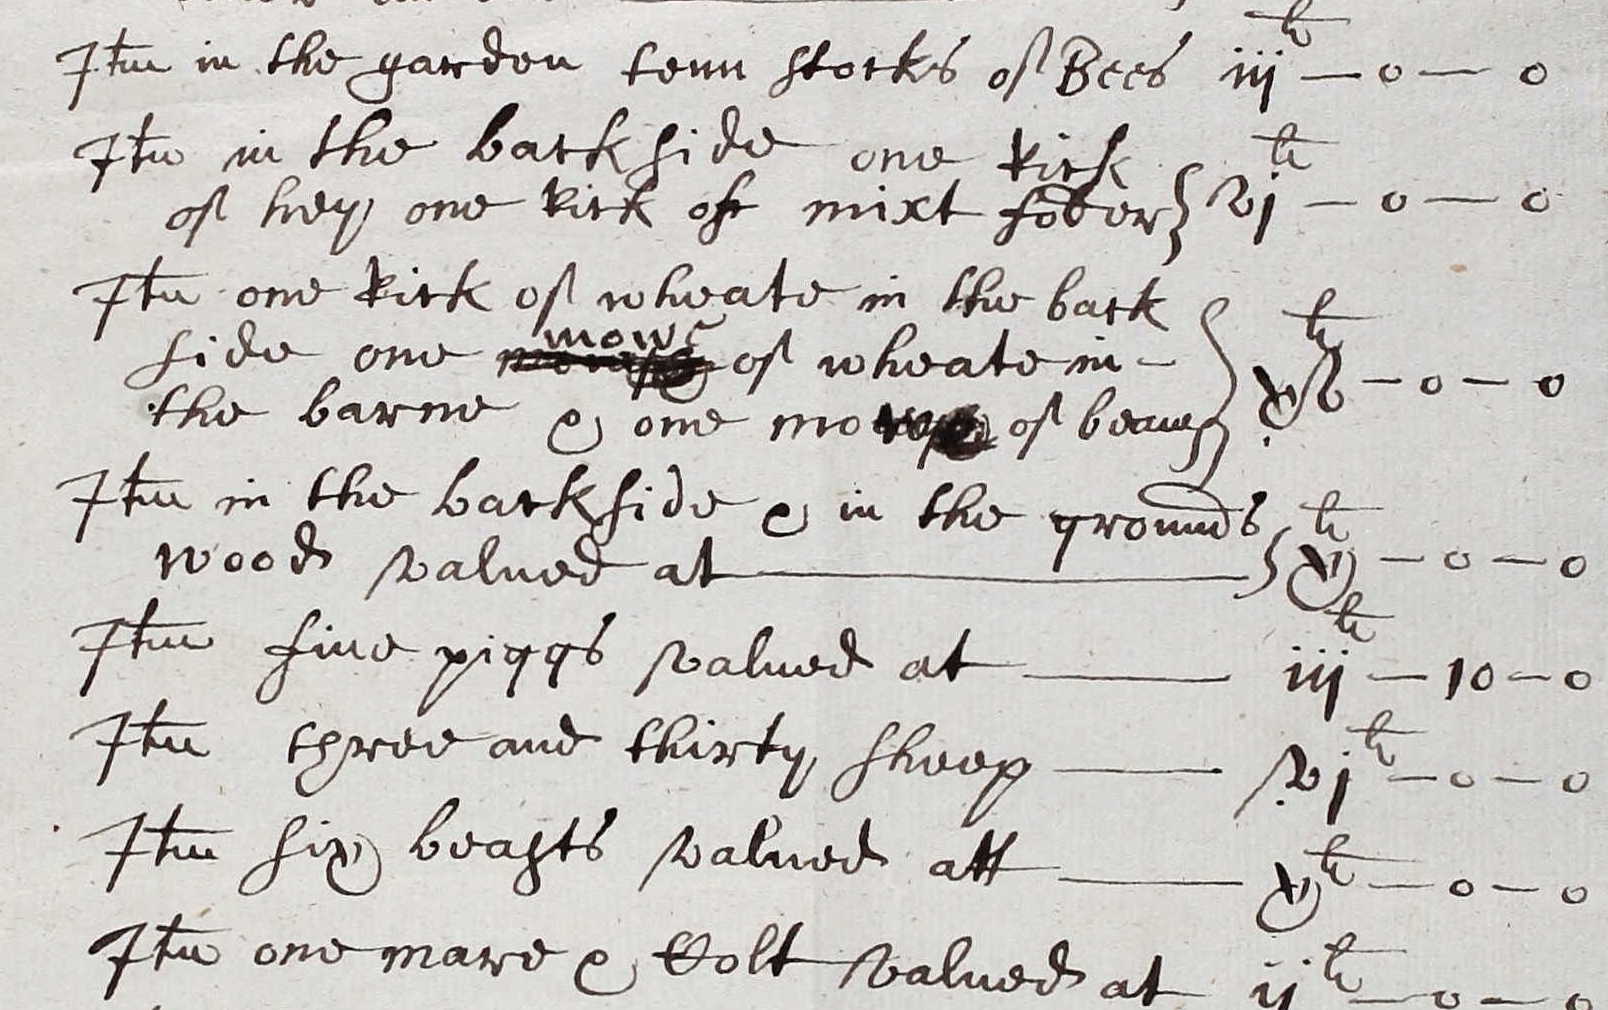 Itm in the garden tenn stocks of Bees iij li — 0 — 0
Itm in the backside one Rick
of hey one Rick of mixt fodder vj li — 0 — 0
Itm one Rick of wheate in the back
side one mowe of wheate in -
the barne & one mow of beanes xv li — 0 — 0
Itm in the backside & in the grounds
wood valued at x li — 0 — 0
Itm five piggs valued at iij li — 10 — 0
Itm three and thirty sheep vj li — 0 — 0
Itm six beasts valued att x li — 0 — 0
Itm one mare & Colt valued at ij li — 0 — 0